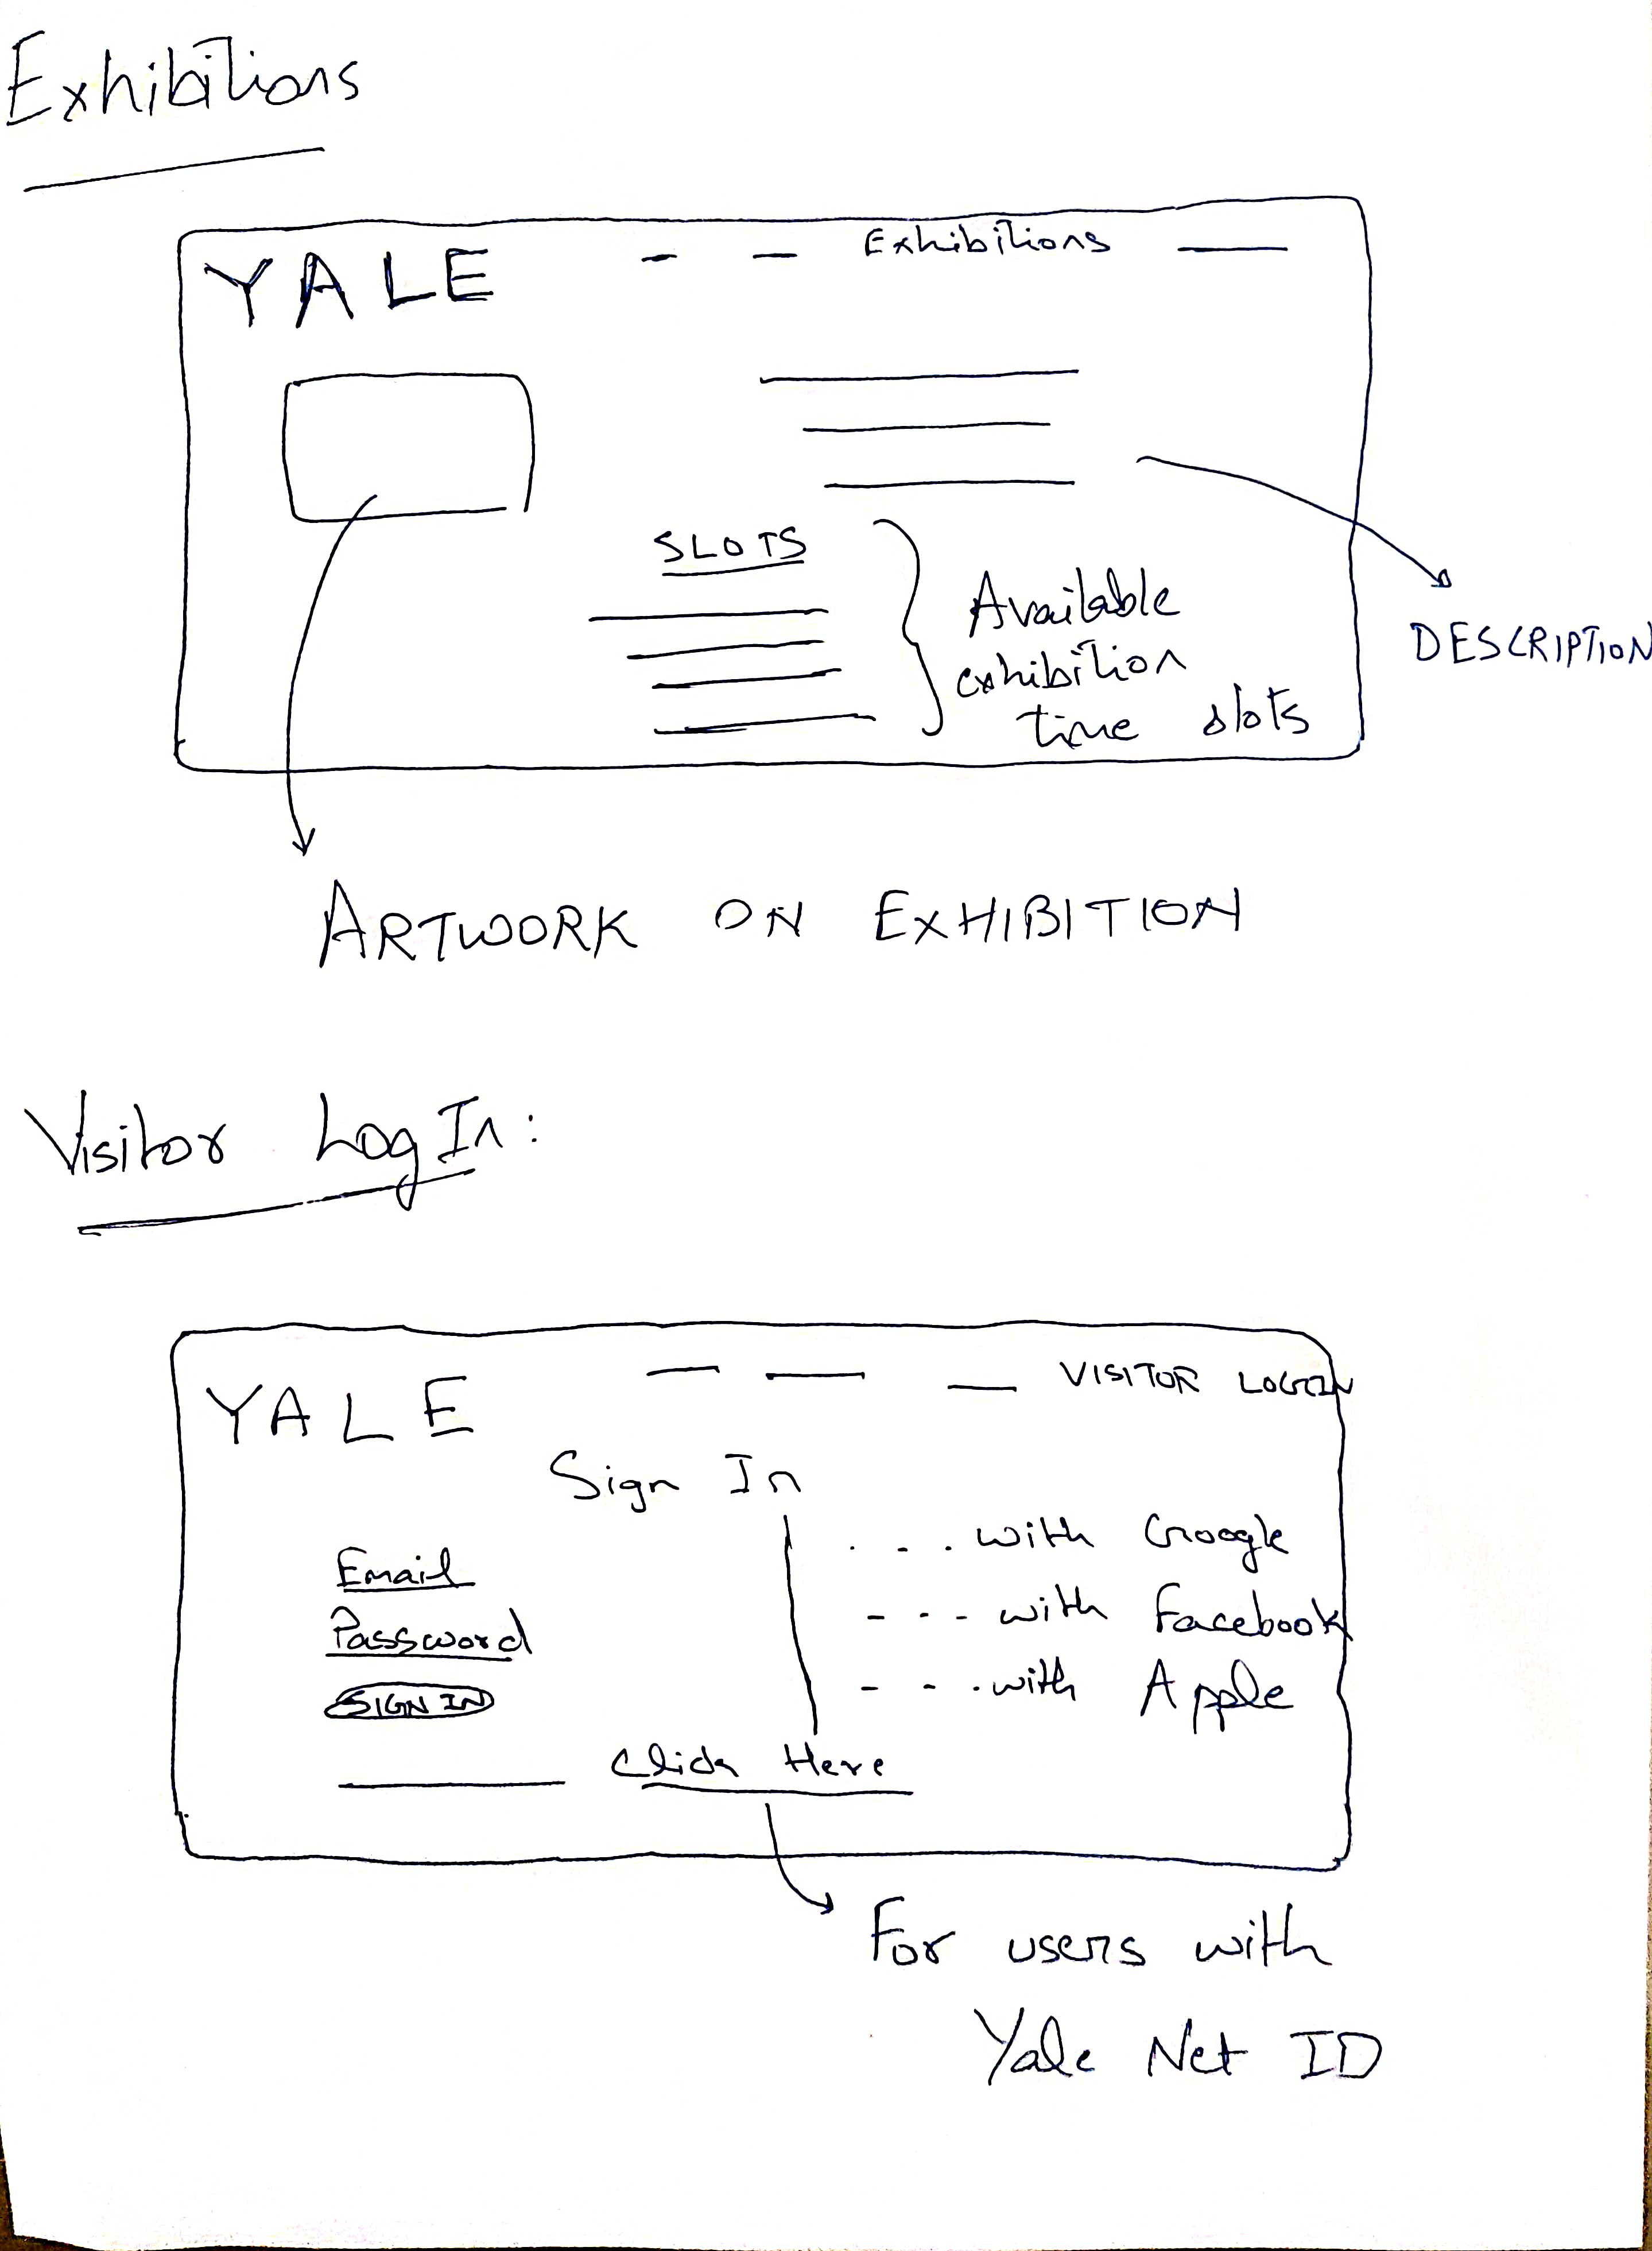 Exhibitions
YALE
Exhibitions
SLOTS
Available
exhibition
time slots
DESCRIPTION
ARTWORK ON EXHIBITION
Visitor LogIn:
YALE
VISITOR LOGIN
Sign In
Email
Password
SIGN IN
with Google
with Facebook
with Apple
Click Here
For users with
Yale Net ID